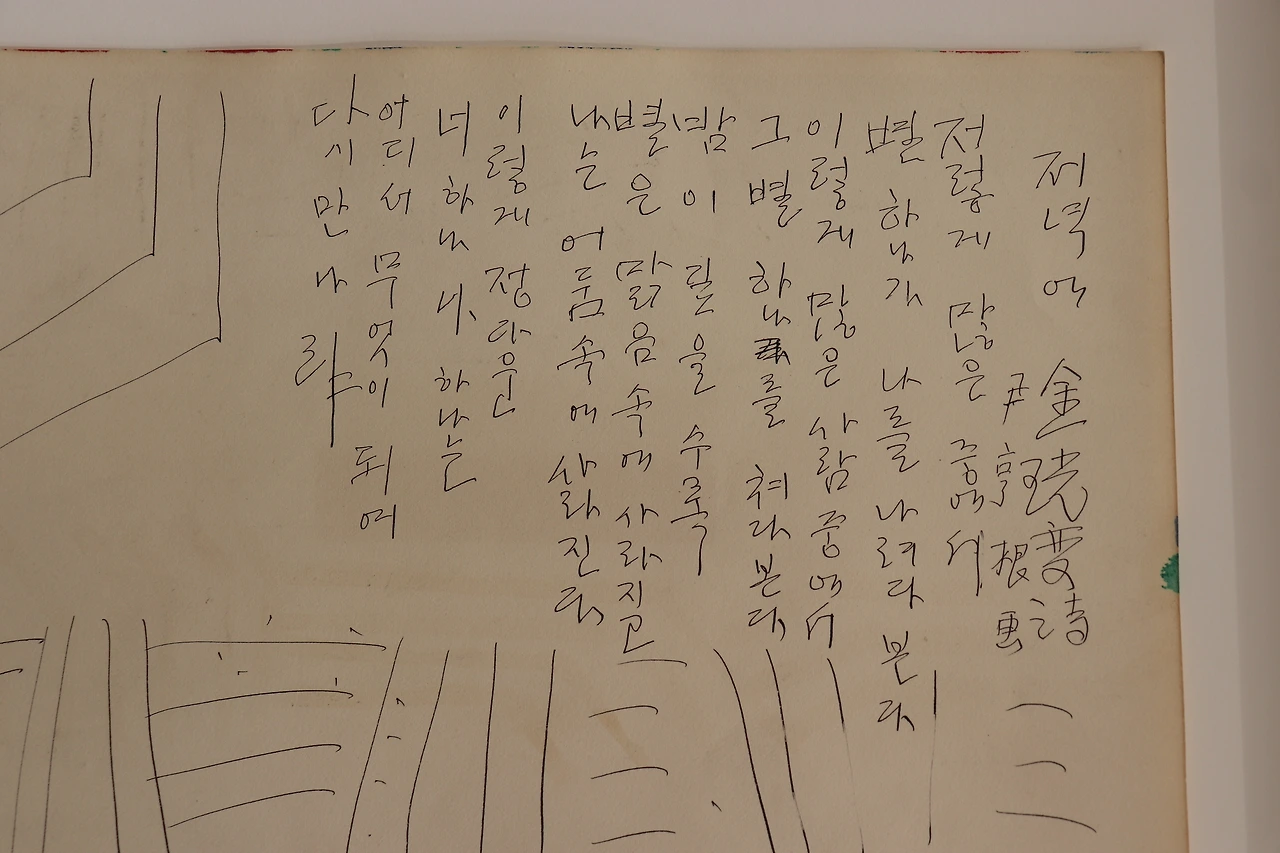 저녁에 金珖変之詩
尹亨根畫
저렇게 많은 중에서
별 하나가 나를 나려다 본다
이렇게 많은 사람 중에서
그 별 하나를 쳐다본다
밤이 깊을수록
별은 밝음 속에 사라지고
나는 어둠속에 사라진다
이렇게 정다운
너 하나 나 하나는
어디서 무엇이 되여
다시 만나랴